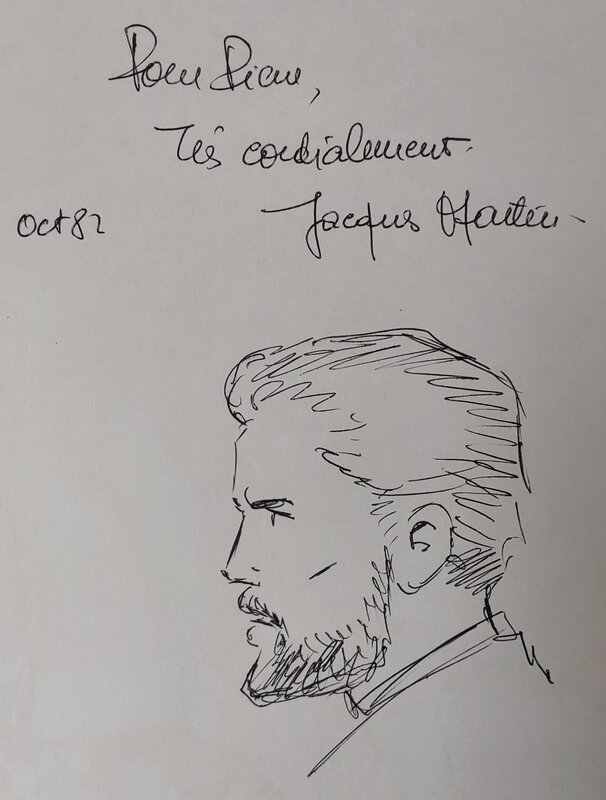 Pour Dian,
Très cordialement.
Jacques Martin
Oct 82